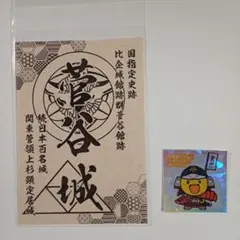 国指定史跡
比企城館跡群菅谷館跡
菅谷城
続日本百名城
関東管領上杉顕定居城